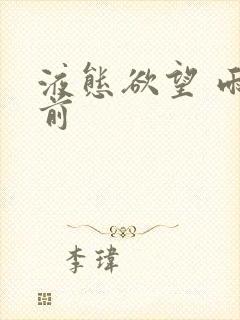 液態欲望
前
李瑋